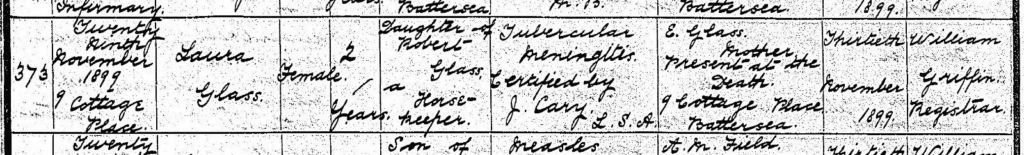 Infirmary. Battersea M.B. Battersea 1899.
373
Twenty
Ninth
November
1899
9 Cottage
Place.
Laura
Glass.
Female.
2
Years.
Daughter of
Robert
Glass,
a
Horse-
keeper.
Tubercular
Meningitis
Certified by
J. Cary
L.S.A.
E. Glass.
Mother
Present at the
Death.
9 Cottage Place
Battersea.
Thirtieth
November
1899.
William
Griffin
Registrar.
Twenty Son of Measles A. M. Field Thirtieth William